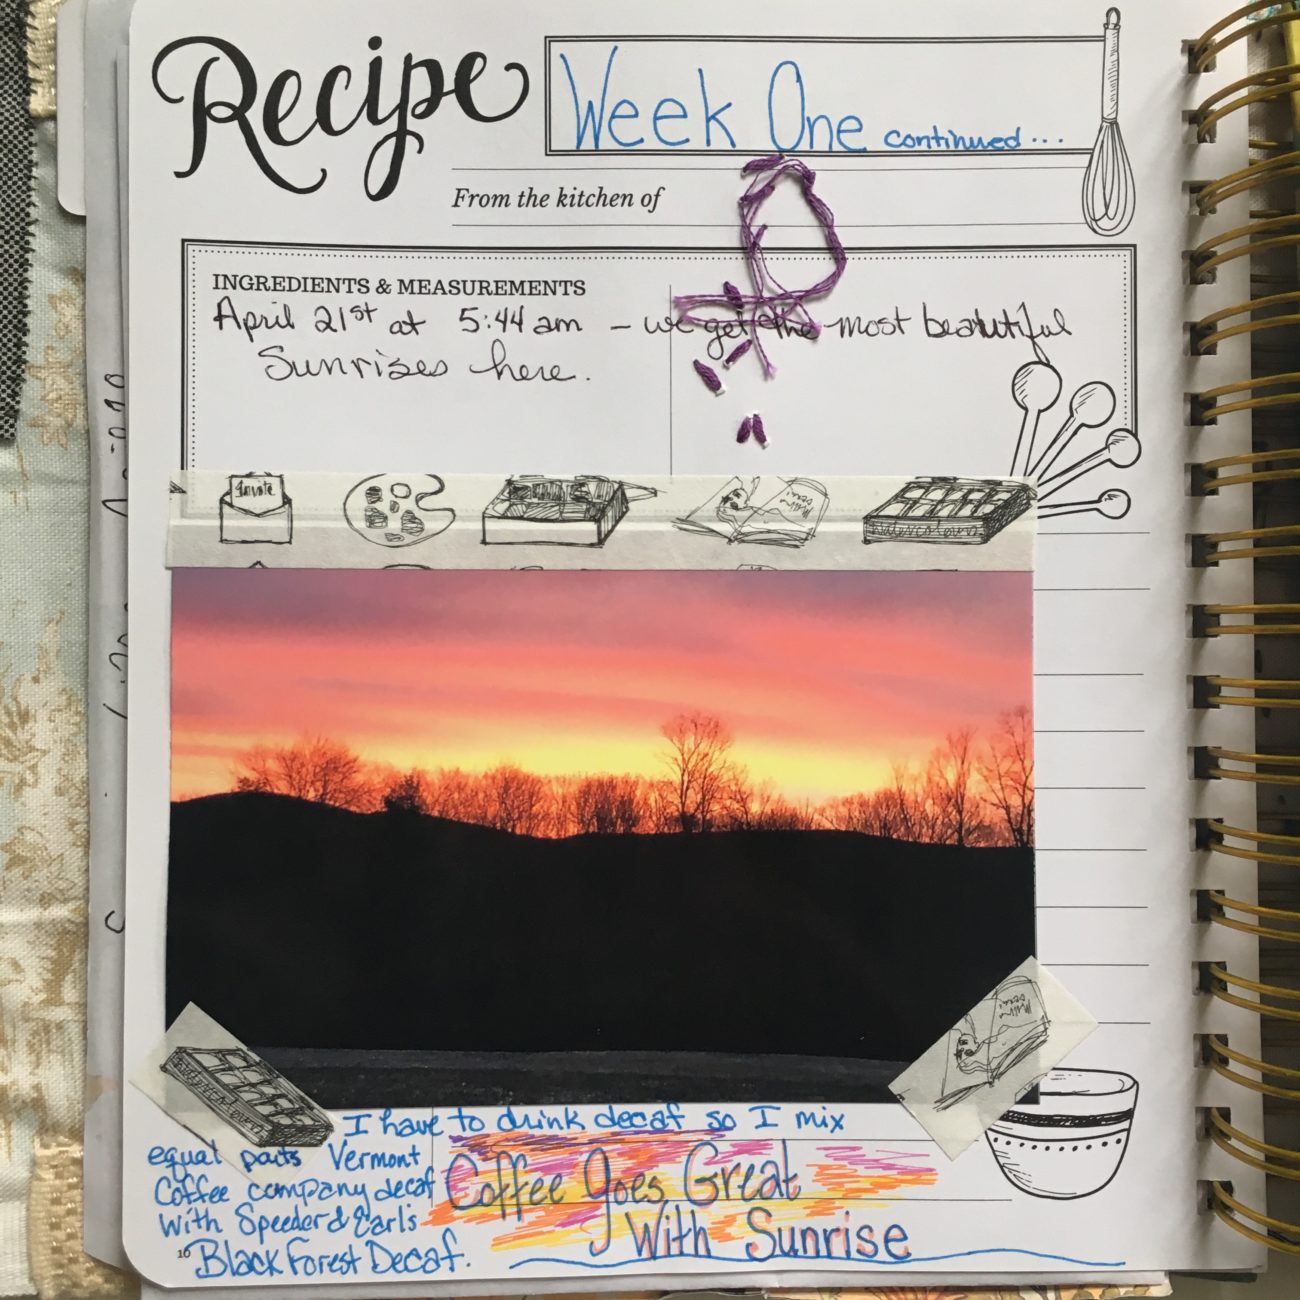 Recipe
Week One continued...
From the kitchen of
INGREDIENTS & MEASUREMENTS
April 21st at 5:44 am – we get the most beautiful
Sunrises here.
Invite
watercolors
I have to drink decaf so I mix
equal parts Vermont
Coffee company decaf
with Speeder & Earl's
Black Forest Decaf.
Coffee Goes Great
With Sunrise
16